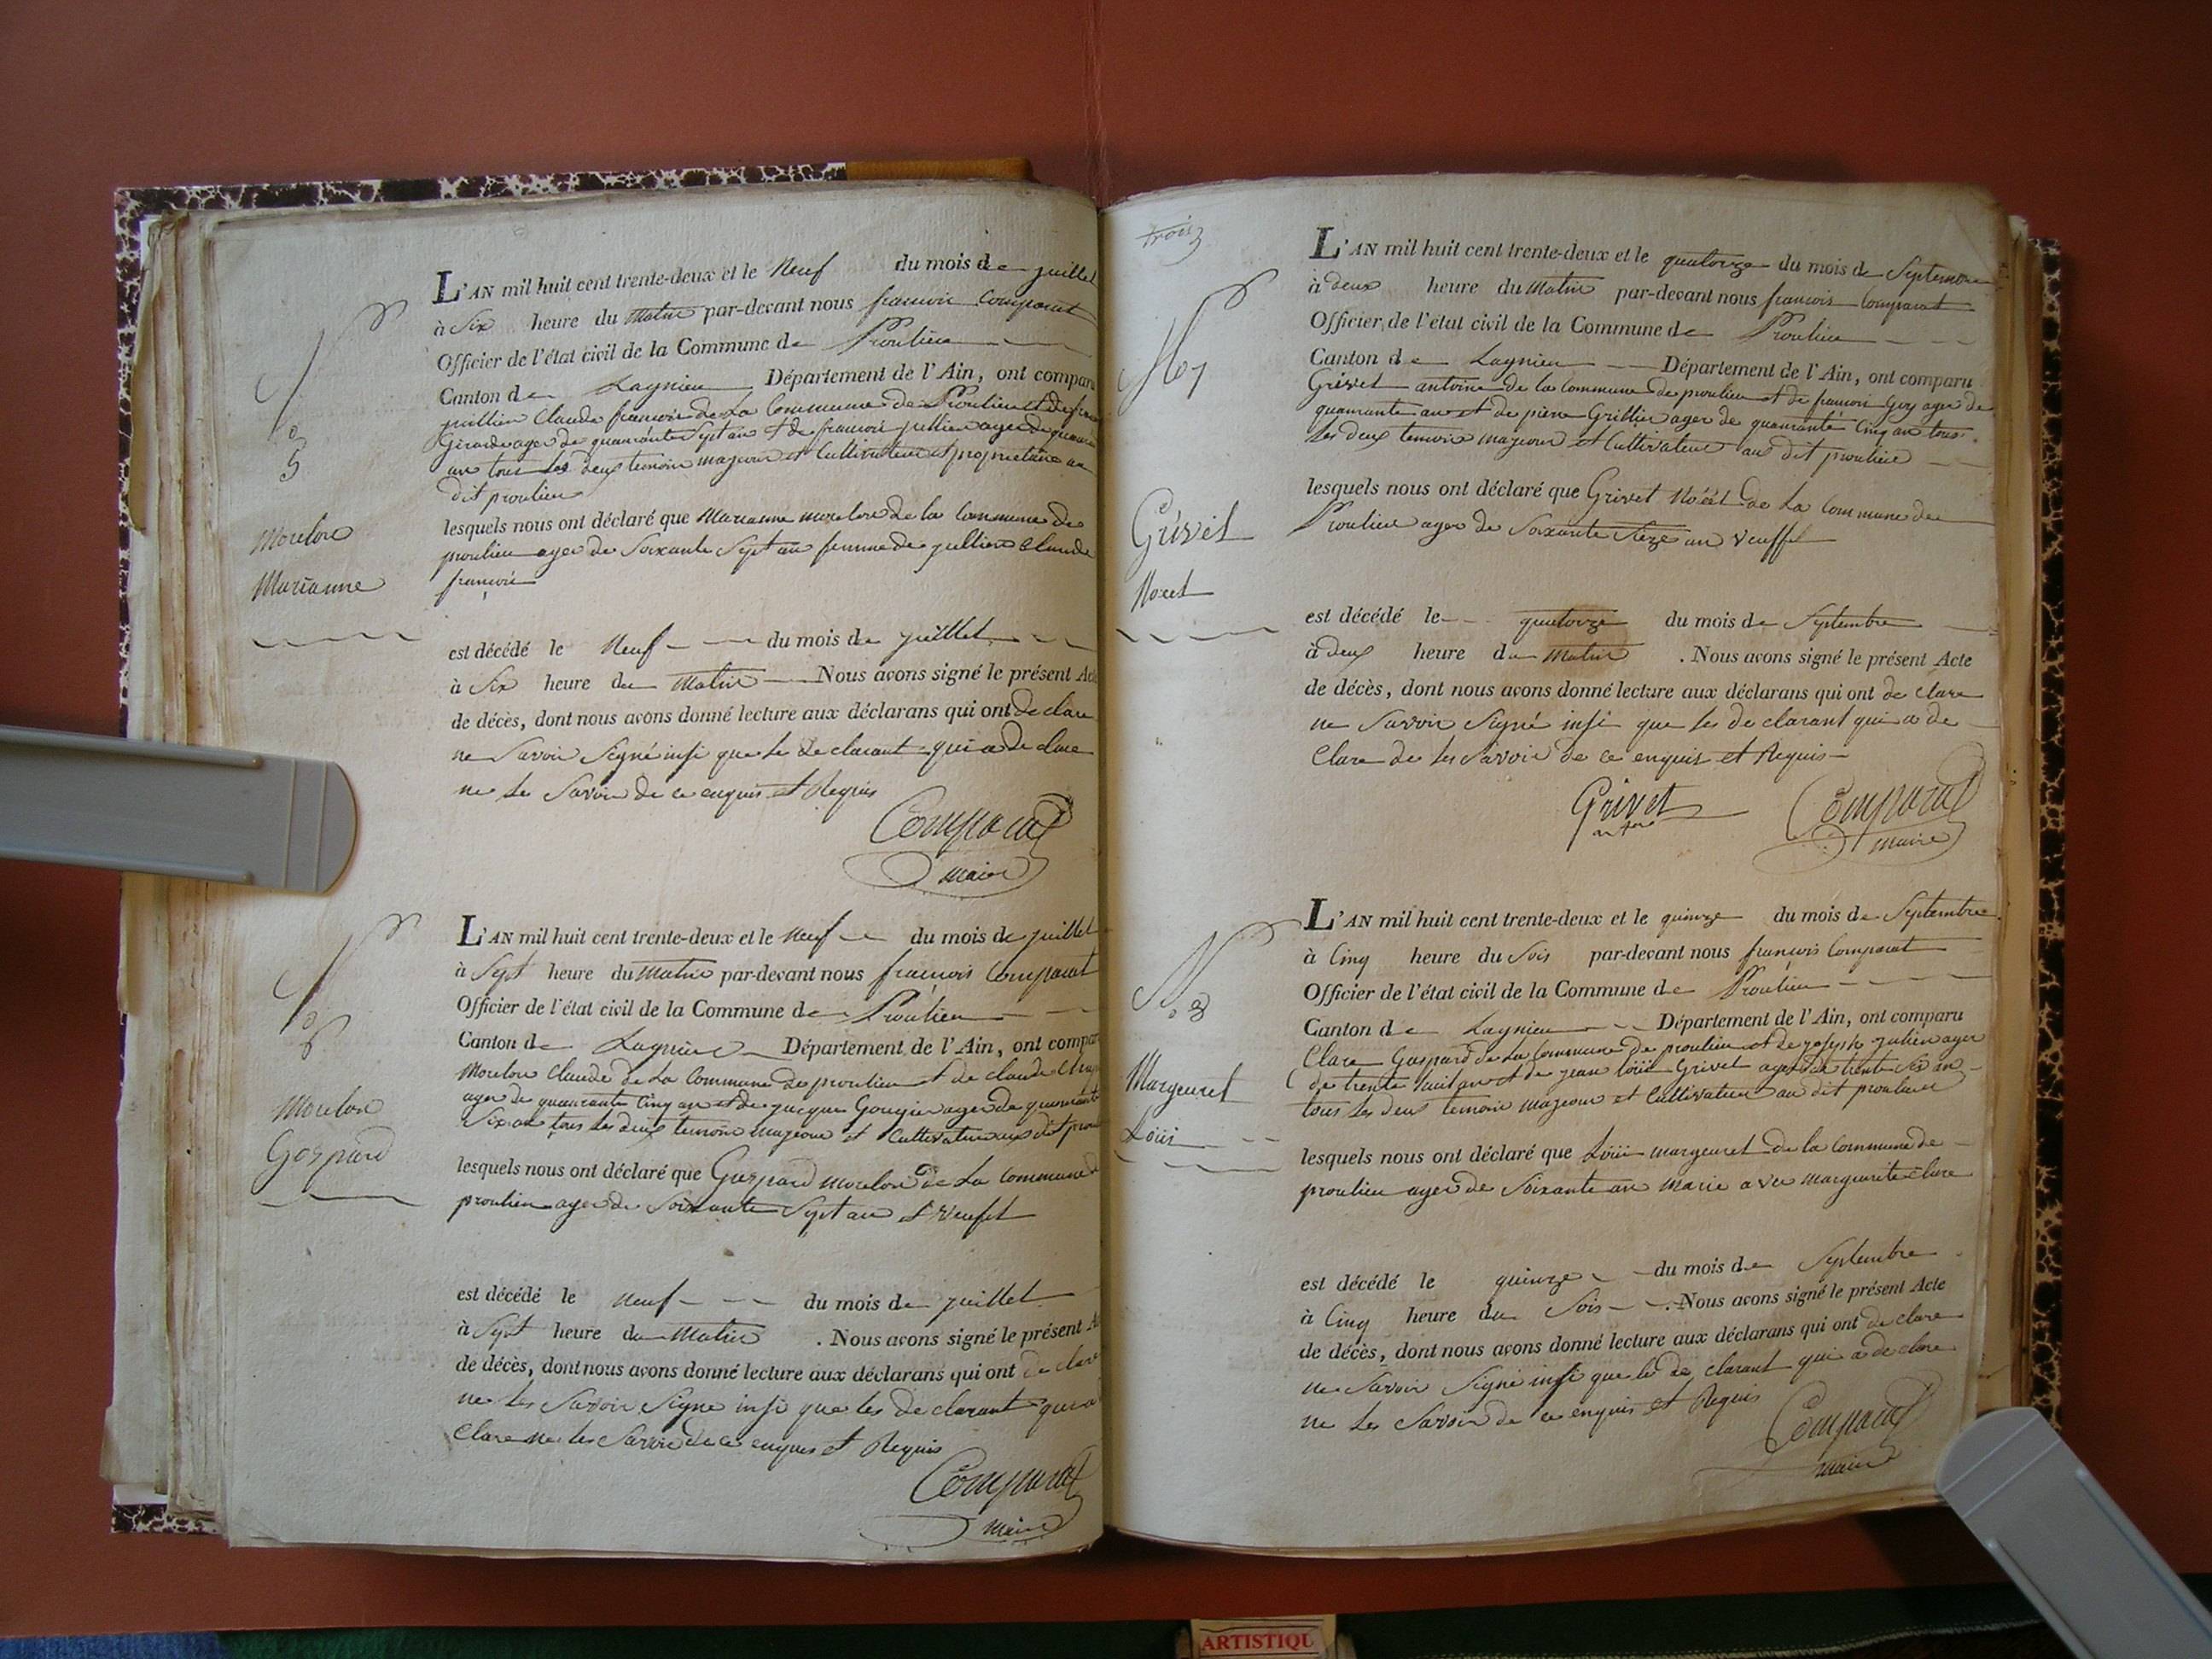 L'AN mil huit cent trente-deux et le Neuf du mois de juillet
à Six heure du Matin par-devant nous francois Comparat
Officier de l'état civil de la Commune de Proulieu
Canton de Lagnieu Département de l'Ain, ont comparu
jullien Claude francois de La Commune de Proulieu et de
Girard ager de quarante Sept an et de francois jullien ager de
an tous Les deux temoin majeour et Cultivateur et proprietaire au
dit proulieu
lesquels nous ont déclaré que Marianne morelon de la Commune de
proulieu ager de Soixante Sept an femme de jullien Claude
francois
est décédé le Neuf du mois de juillet
à Six heure du Matin Nous avons signé le présent Acte
de décès, dont nous avons donné lecture aux déclarans qui ont de clare
ne Savoir Signé insi que le de clarant qui a de clare
ne les Savoir de ce enquis et Requis
Comparat
maire
N
5
Morelon
Marianne
L'AN mil huit cent trente-deux et le Neuf du mois de juillet
à Sept heure du Matin par-devant nous francois Comparat
Officier de l'état civil de la Commune de Proulieu
Canton de Lagnieu Département de l'Ain, ont comparu
Morelon Claude de La Commune de proulieu et de claude
ager de quarante Cinq an et de jacque Gougier ager de quarante
Six an tous les deux temoin majeour et Cultivateur au dit
lesquels nous ont déclaré que Gaspard Morelon de La Commune
proulieu ager de Soixante Sept an et Veufet
est décédé le neuf du mois de juillet
à Sept heure du Matin . Nous avons signé le présent
de décès, dont nous avons donné lecture aux déclarans qui ont de clare
ne les Savoir Signe insi que les de clarant qui a
Clare ne les Savoir de ce enques et Requis
Comparat
maire
N
6
Morelon
Gaspard
trois
L'AN mil huit cent trente-deux et le quatorze du mois de Septembre
à deux heure du Matin par-devant nous francois Comparat
Officier de l'état civil de la Commune de Proulieu
Canton de Lagnieu Département de l'Ain, ont comparu
Grivet antoine de la Commune de proulieu et de francois Goy ager de
quarante an et de pierre Grillier ager de quarante Cinq an tous
Les deux temoin majeour et Cultivateur au dit proulieu
lesquels nous ont déclaré que Grivet Noeel de La Commune de
Proulieu ager de Soixante Seze an Veuffet
est décédé le quatorze du mois de Septembre
à deux heure du Matin . Nous avons signé le présent Acte
de décès, dont nous avons donné lecture aux déclarans qui ont de clare
ne Savoir Signé insi que les de clarant qui a de
Clare de les Savoir de ce enquis et Requis
Grivet Comparat
maire
N 7
Grivet
Noeel
L'AN mil huit cent trente-deux et le quinze du mois de Septembre
à Cinq heure du Soir par-devant nous francois Comparat
Officier de l'état civil de la Commune de Proulieu
Canton de Lagnieu Département de l'Ain, ont comparu
Clare Gaspard de La Commune de proulieu et de joseph julien ager
de trente huit an et de jean Loüi Grivet ager de trente Six an
tous les deux temoin majeour et Cultivateur au dit proulieu
lesquels nous ont déclaré que Loüi margeuret de la Commune de
proulieu ager de Soixante an Marie a vec marguerite Clare
est décédé le quinze du mois de Septembre
à Cinq heure du Soir . Nous avons signé le présent Acte
de décès, dont nous avons donné lecture aux déclarans qui ont de clare
ne Savoir Signe insi que le de clarant qui a de clare
ne les Savoir de ce enquis et Requis
Comparat
maire
N 8
Margeuret
Loüi
ARTISTIQU